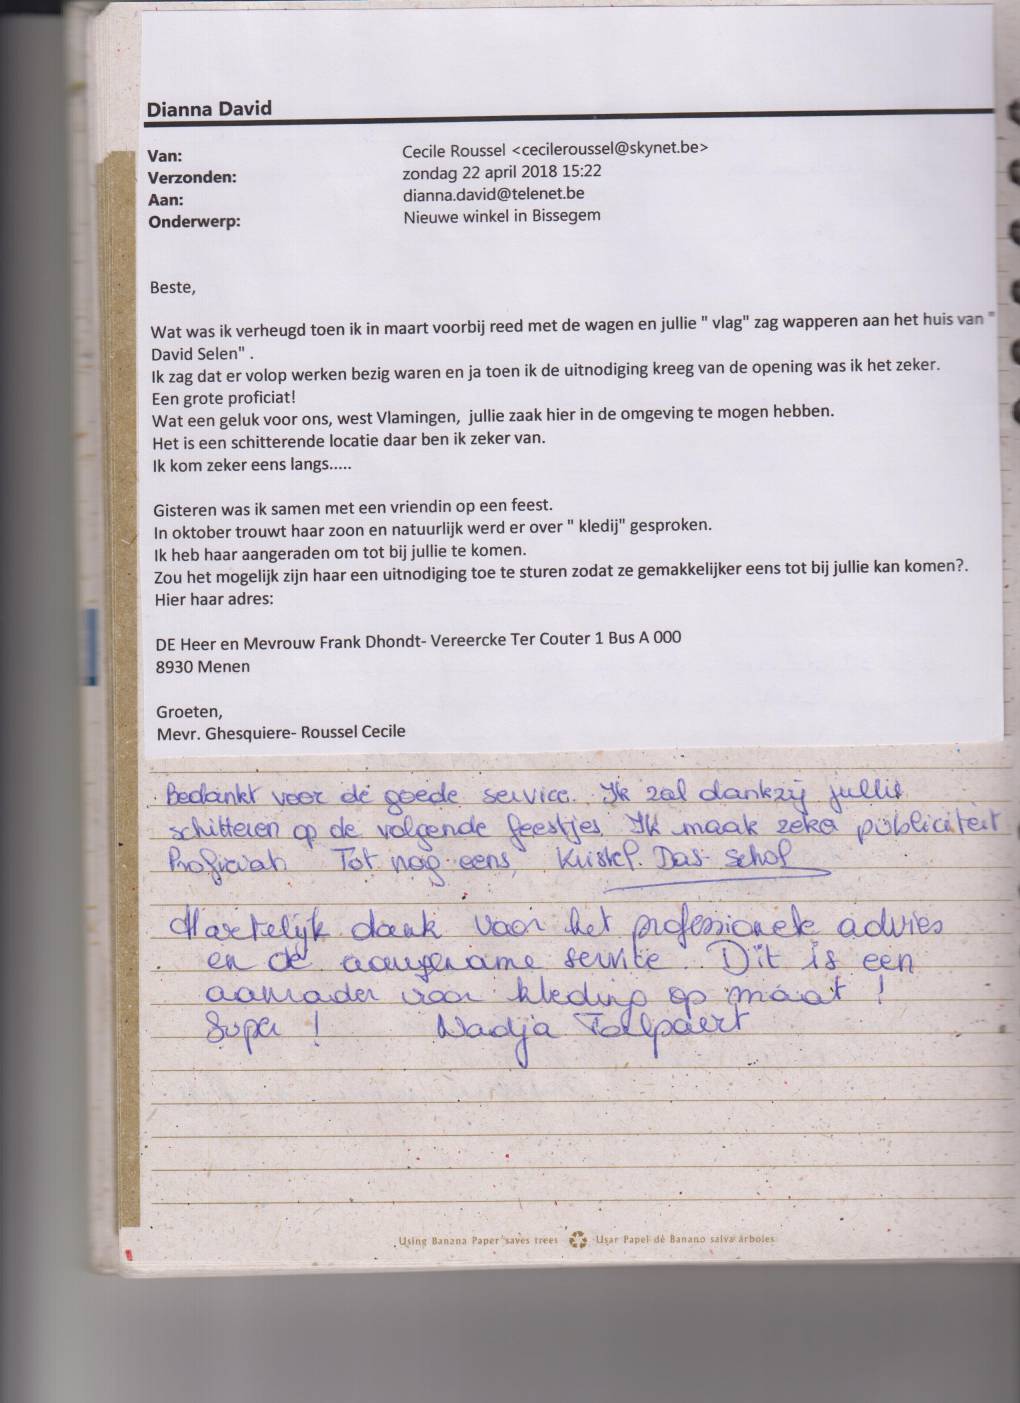 Dianna David
Van: Cecile Roussel <cecileroussel@skynet.be>
Verzonden: zondag 22 april 2018 15:22
Aan: dianna.david@telenet.be
Onderwerp: Nieuwe winkel in Bissegem
Beste,
Wat was ik verheugd toen ik in maart voorbij reed met de wagen en jullie " vlag" zag wapperen aan het huis van "
David Selen" .
Ik zag dat er volop werken bezig waren en ja toen ik de uitnodiging kreeg van de opening was ik het zeker.
Een grote proficiat!
Wat een geluk voor ons, west Vlamingen, jullie zaak hier in de omgeving te mogen hebben.
Het is een schitterende locatie daar ben ik zeker van.
Ik kom zeker eens langs.....
Gisteren was ik samen met een vriendin op een feest.
In oktober trouwt haar zoon en natuurlijk werd er over " kledij" gesproken.
Ik heb haar aangeraden om tot bij jullie te komen.
Zou het mogelijk zijn haar een uitnodiging toe te sturen zodat ze gemakkelijker eens tot bij jullie kan komen?.
Hier haar adres:
DE Heer en Mevrouw Frank Dhondt- Vereercke Ter Couter 1 Bus A 000
8930 Menen
Groeten,
Mevr. Ghesquiere- Roussel Cecile
Bedankt voor de goede service. Ik zal dankzij jullie
schitteren op de volgende feestjes. Ik maak zeker publiciteit
Proficiat. Tot nog eens,
Hartelijk dank voor het professionele advies
en de aangename service. Dit is een
aanrader voor kleding op maat !
Super ! Nadja
Using Banana Paper saves trees Usar Papel de Banano salva árboles